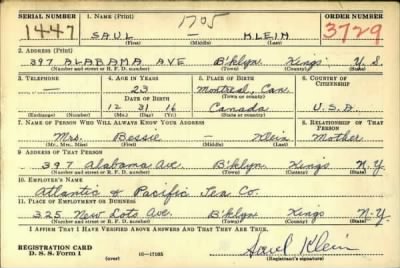 SERIAL NUMBER 1. NAME (Print) 1705 ORDER NUMBER
1447 SAUL — KLEIN 3729
(First) (Middle) (Last)
2. ADDRESS (Print)
397 ALABAMA AVE B'klyn Kings Y.S.
(Number and street or R. F. D. number) (Town) (County) (State)
3. TELEPHONE 4. AGE IN YEARS 5. PLACE OF BIRTH 6. COUNTRY OF CITIZENSHIP
— 23 Montreal, Can.
DATE OF BIRTH (Town or county)
12 31 16 Canada U.S.A.
(Exchange) (Number) (Mo.) (Day) (Yr.) (State or country)
7. NAME OF PERSON WHO WILL ALWAYS KNOW YOUR ADDRESS 8. RELATIONSHIP OF THAT PERSON
Mrs. Bessie — Klein Mother
(Mr., Mrs., Miss) (First) (Middle) (Last)
9. ADDRESS OF THAT PERSON
397 Alabama Ave. B'klyn Kings N-Y
(Number and street or R. F. D. number) (Town) (County) (State)
10. EMPLOYER'S NAME
Atlantic & Pacific Tea Co.
11. PLACE OF EMPLOYMENT OR BUSINESS
325 New Lots Ave. B'klyn Kings N-Y
(Number and street or R. F. D. number) (Town) (County) (State)
I AFFIRM THAT I HAVE VERIFIED ABOVE ANSWERS AND THAT THEY ARE TRUE.
REGISTRATION CARD Saul Klein
D. S. S. FORM 1 (over) 16—17105 (Registrant's signature)